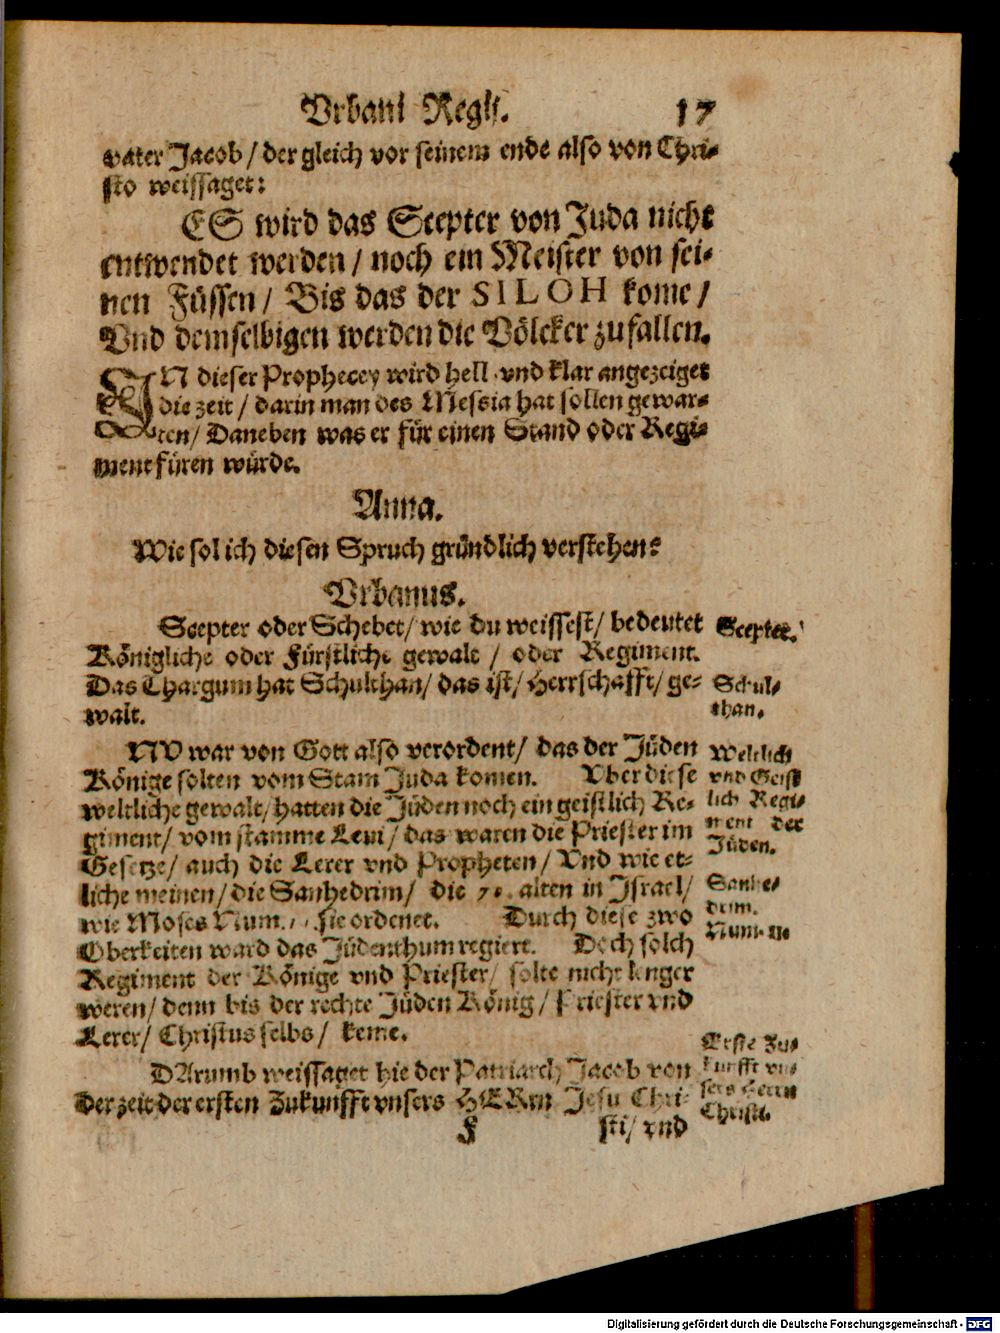 Vrbani Regij. 17
vater Jacob / der gleich vor seinem ende also von Chri-
sto weissaget:
ES wird das Scepter von Juda nicht
entwendet werden / noch ein Meister von sei-
nen Füssen / Bis das der SILOH kome /
Vnd demselbigen werden die Völcker zufallen.
IN dieser Prophecey wird hell vnd klar angezeiget
die zeit / darin man des Messia hat sollen gewar-
ten / Daneben was er für einen Stand oder Regi-
ment füren würde.
Anna.
Wie sol ich diesen Spruch gründlich verstehen?
Vrbanus.
Scepter oder Schebet / wie du weissest / bedeutet
Scepter.
Königliche oder Fürstliche gewalt / oder Regiment.
Das Thargum hat Schulthan / das ist / Herrschafft / ge-
walt.
Schul-
than.
NV war von Gott also verordent / das der Jüden
Könige solten vom Stam Juda komen. Vber diese
weltliche gewalt / hatten die Jüden noch ein geistlich Re-
giment / vom stamme Leui / das waren die Priester im
Gesetze / auch die Lerer vnd Propheten / Vnd wie et-
liche meinen / die Sanhedrim / die 70. alten in Israel /
wie Moses Num. sie ordenet. Durch diese zwo
Oberkeiten ward das Jüdenthum regiert. Doch solch
Regiment der Könige vnd Priester / solte nicht lenger
weren / denn bis der rechte Jüden König / Priester vnd
Lerer / Christus selbs / keme.
Weltlich
vnd Geist
lich Regi-
ment der
Jüden.
Sanhe-
drim.
Num.
DArumb weissaget hie der Patriarch Jacob von
der zeit der ersten Zukunfft vnsers HERrn Jesu Chri-
Erste Zu-
kunfft vn-
sers Herrn
Christi.
F sti / vnd
Digitalisierung gefördert durch die Deutsche Forschungsgemeinschaft - DFG